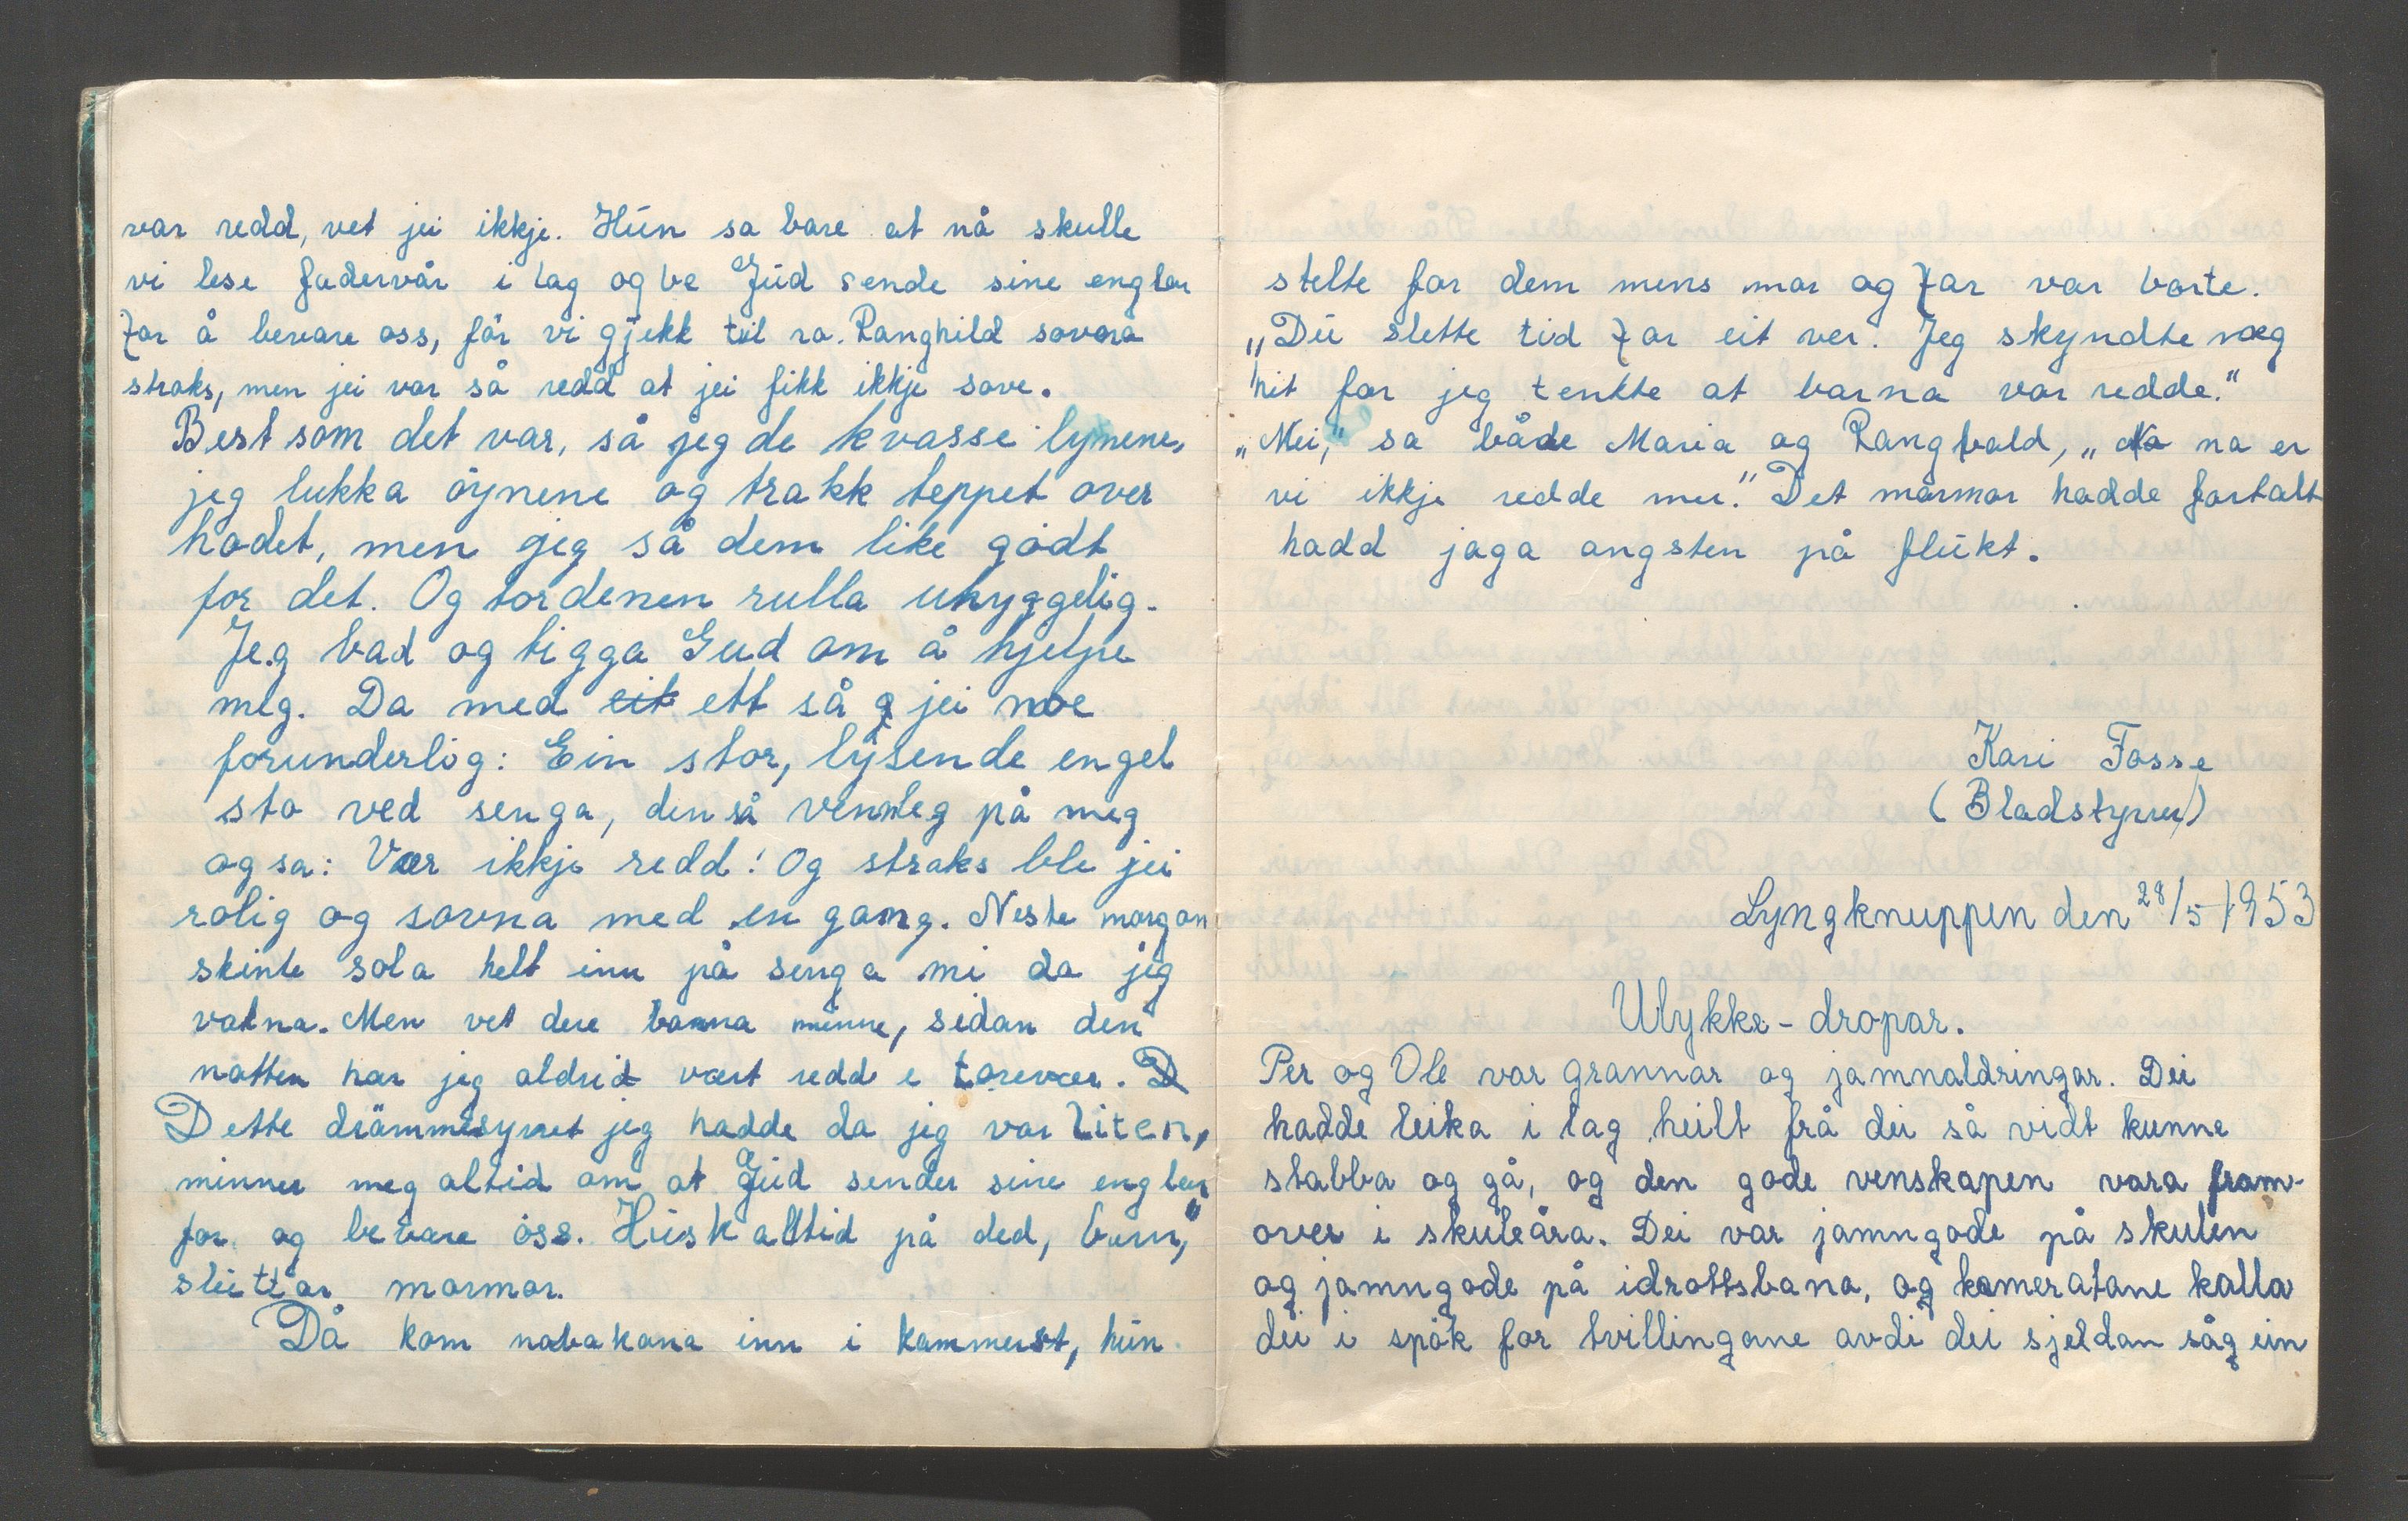 var redd, vet jei ikkje. Hún sa bare at nå skulle
vi lese fadervår i lag og be Gúd sende sine englar
for å bevare oss, får vi gjekk til ro. Ranghild sovora
straks, men jei var så redd at jei fikk ikkje sove.
Best som det var, så jeg de kvasse lynene,
jeg lukka öynene og trakk teppet over
hodet, men jeg så dem like godt
for det. Og tordenen rulla uhyggelig.
Jeg bad og tigga Gud om å hjelpe
meg. Da med eit ett så g jei noe
forunderlig: Ein stor, lysende engel
sto ved senga, den så venleg på meg
og sa: Vær ikkje redd! Og straks ble jei
rolig og sovna med en gang. Neste morgon
skinte sola helt inn på senga mi da jeg
vakna. Men vet dere banna minne, sidan den
natten har jeg aldrid vært redd e torevær. D
Dette drämmesynet jeg hadde da jeg var liten,
minner meg altid om at Gúd sender sine englar
for og bevare oss. Húsk alltid på ded, born,"
slúttar mormor.
Då kom nabakona inn i kammerst, hún
stelte for dem mens mor og far var borte.
"Dú slette tid for eit ver. Jeg skyndte meg
hit for jeg tenkte at barna var redde."
"Nei," sa både Maria og Rangvald, "Nå na er
vi ikkje redde mer." Det mormor hadde fortalt
hadd jaga angsten på flúkt.
Kari Fosse
(Bladstyrer)
Lyngknuppen den 28/5 1953
Ulykke-dropar.
Per og Ole var grannar og jamnaldringar. Dei
hadde leika i lag heilt frå dei så vidt kunne
stabba og gå, og den gode venskapen vara fram-
over i skuleåra. Dei var jamngode på skulen
og jamngode på idrottsbana, og kameratane kalla
dei i spök for tvillingane avdi dei sjeldan såg ein